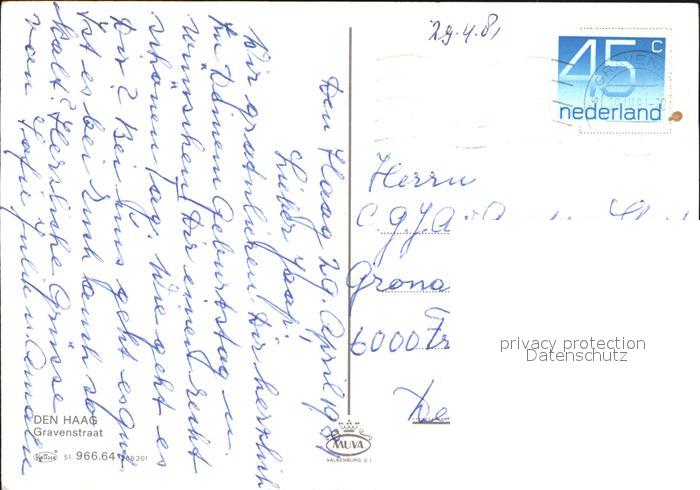 Den Haag 29. April 1981
Lieber Jaap!
Wir gratulieren Dir herzlich
zu Deinem Geburtstag u.
wünschen Dir einen recht
schönen Tag. Wie geht es
Dir? Bei uns geht es gut
Ist es bei Euch auch so
kalt? Herzliche Grüsse
von
29.4.81
45 c
nederland
Herrn
C.G.J.
Grona
6000 Fr
De
privacy protection
Datenschutz
DEN HAAG
Gravenstraat
51 966.64 268201
MUVA
VALKENBURG (L.)